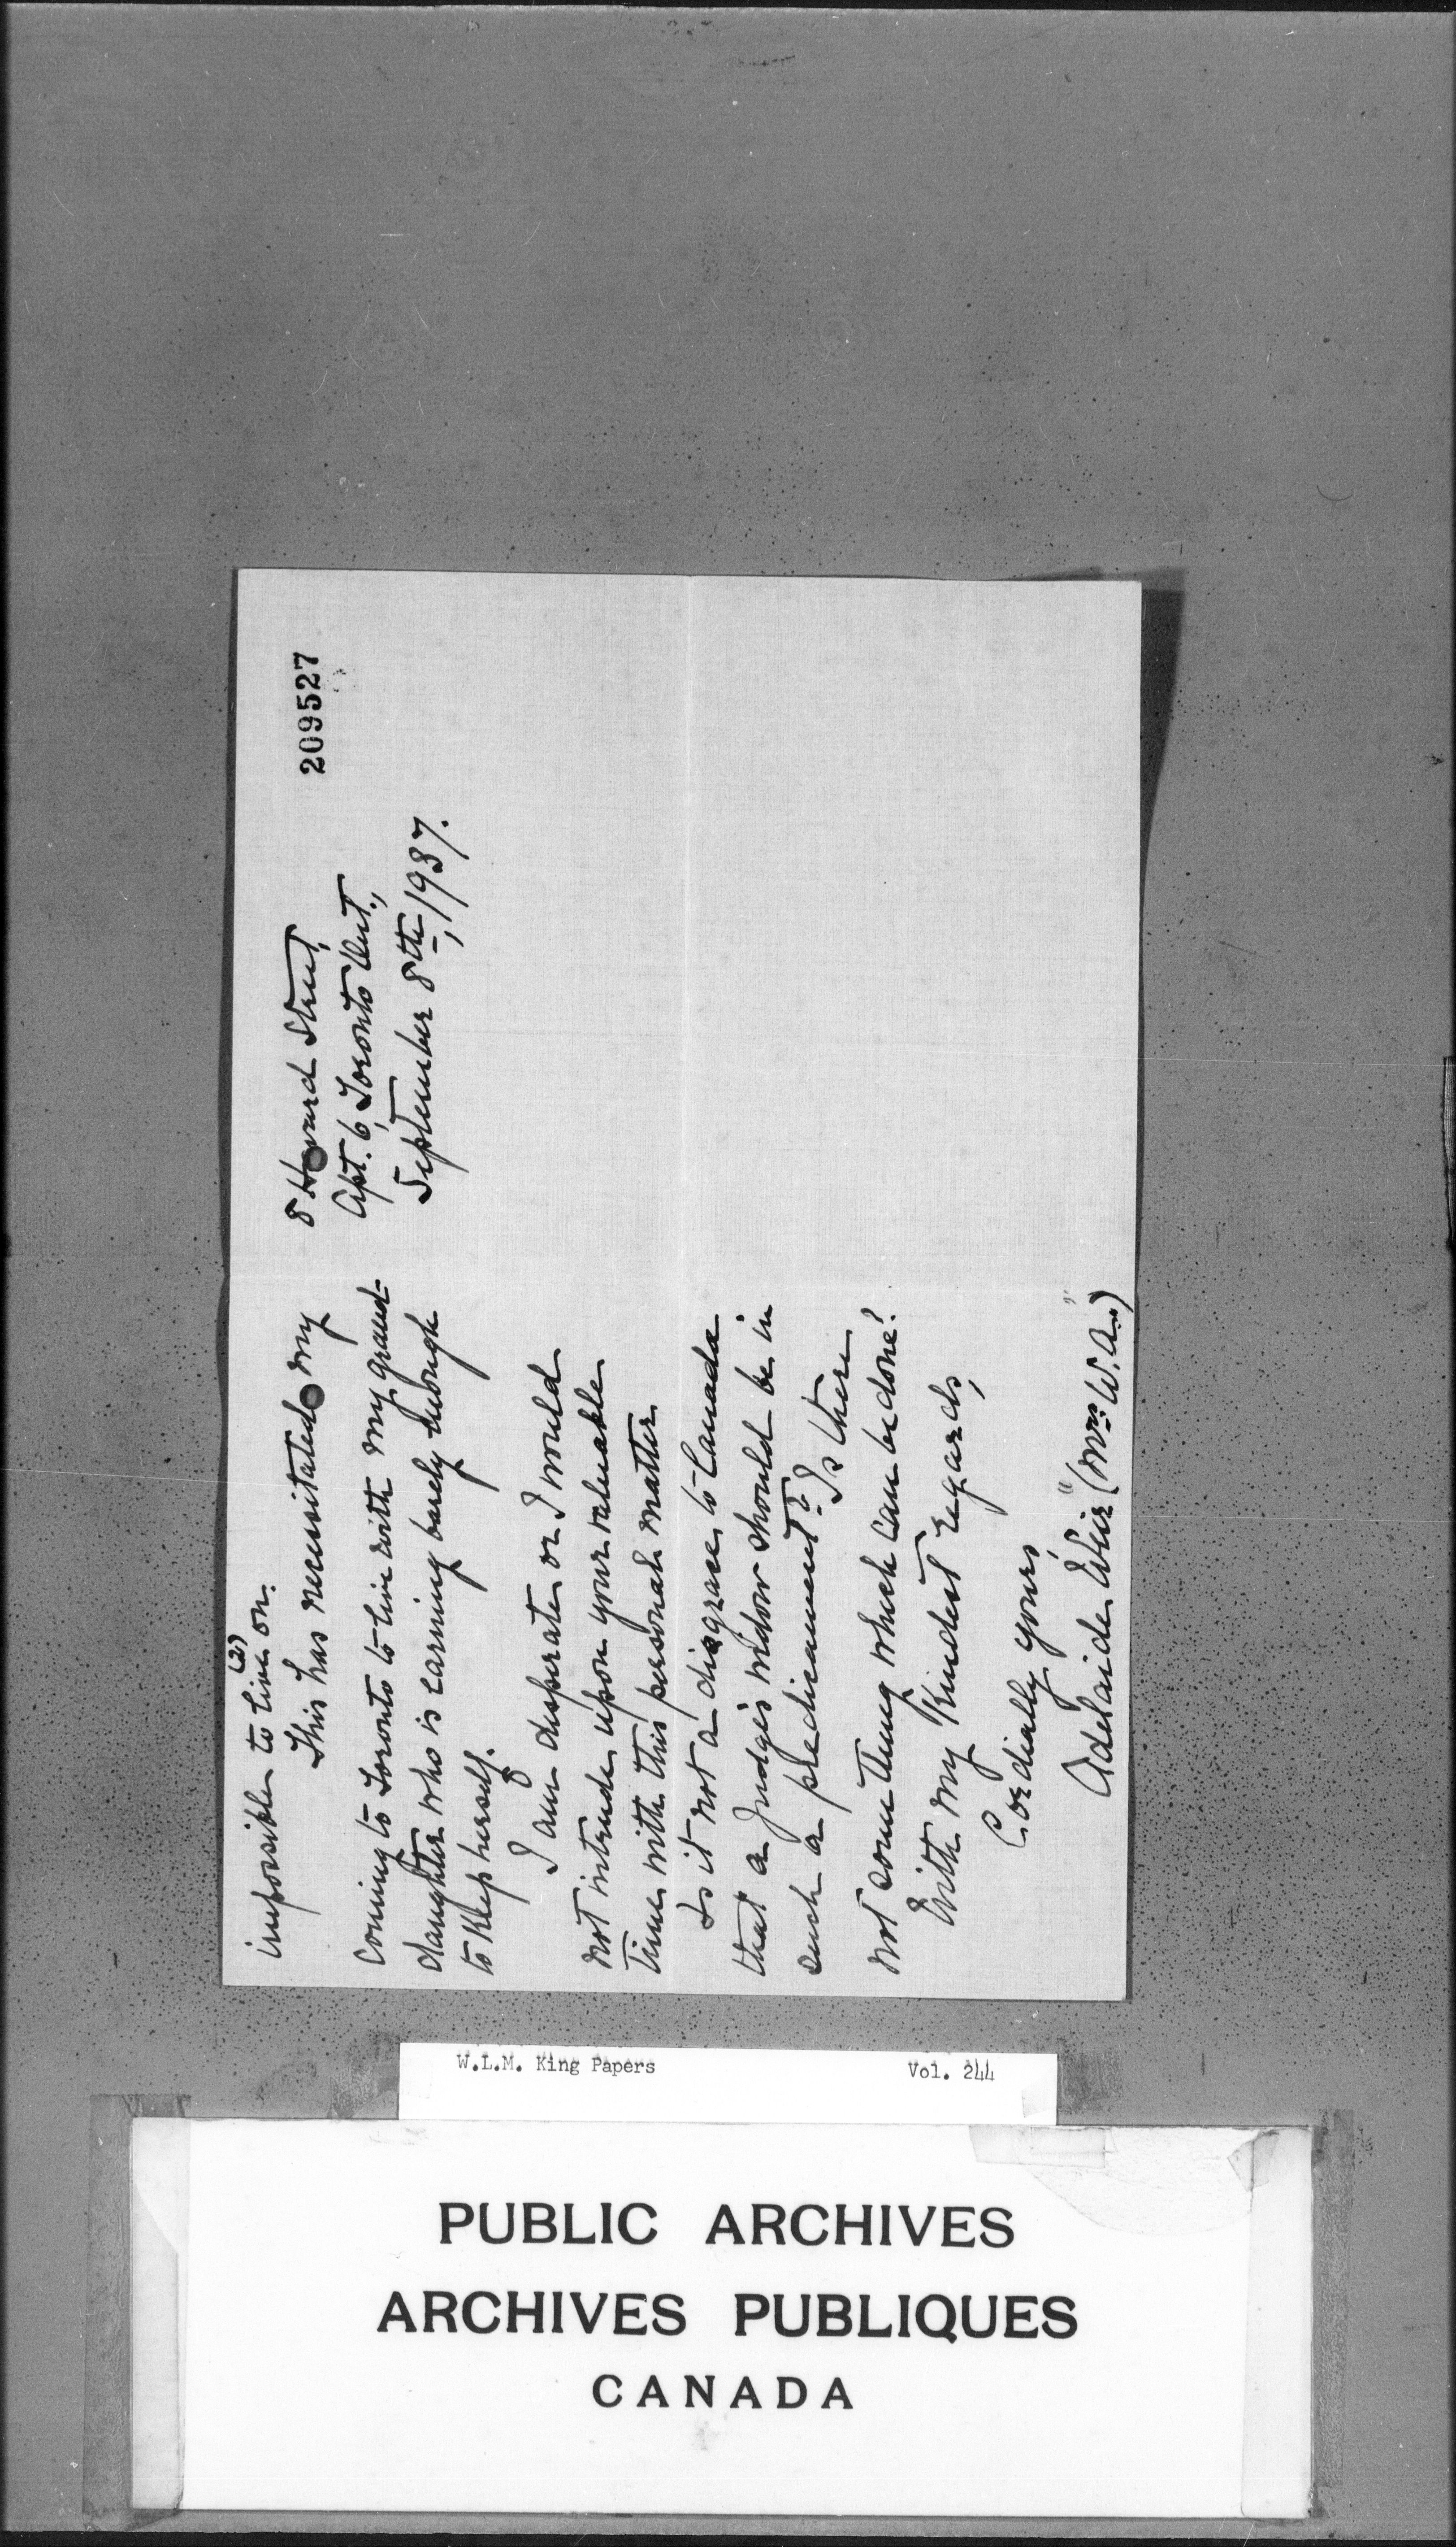 (2)
impossible to live on.
This has necessitated my
coming to Toronto to live with my grand-
daughter who is earning barely enough
to keep herself.
I am desperate or I would
not intrude upon your valuable
time with this personal matter
Is it not a disgrace to Canada
that a Judge's widow should be in
such a predicament? Is there
not some thing which can be done?
With my kindest regards,
Cordially yours,
Adelaide
"(Mrs. W.A.")
8 Howard Street,
Apt. 6, Toronto Ont.,
September 8th, 1937.
209527
W.L.M. King Papers Vol. 244
PUBLIC ARCHIVES
ARCHIVES PUBLIQUES
CANADA